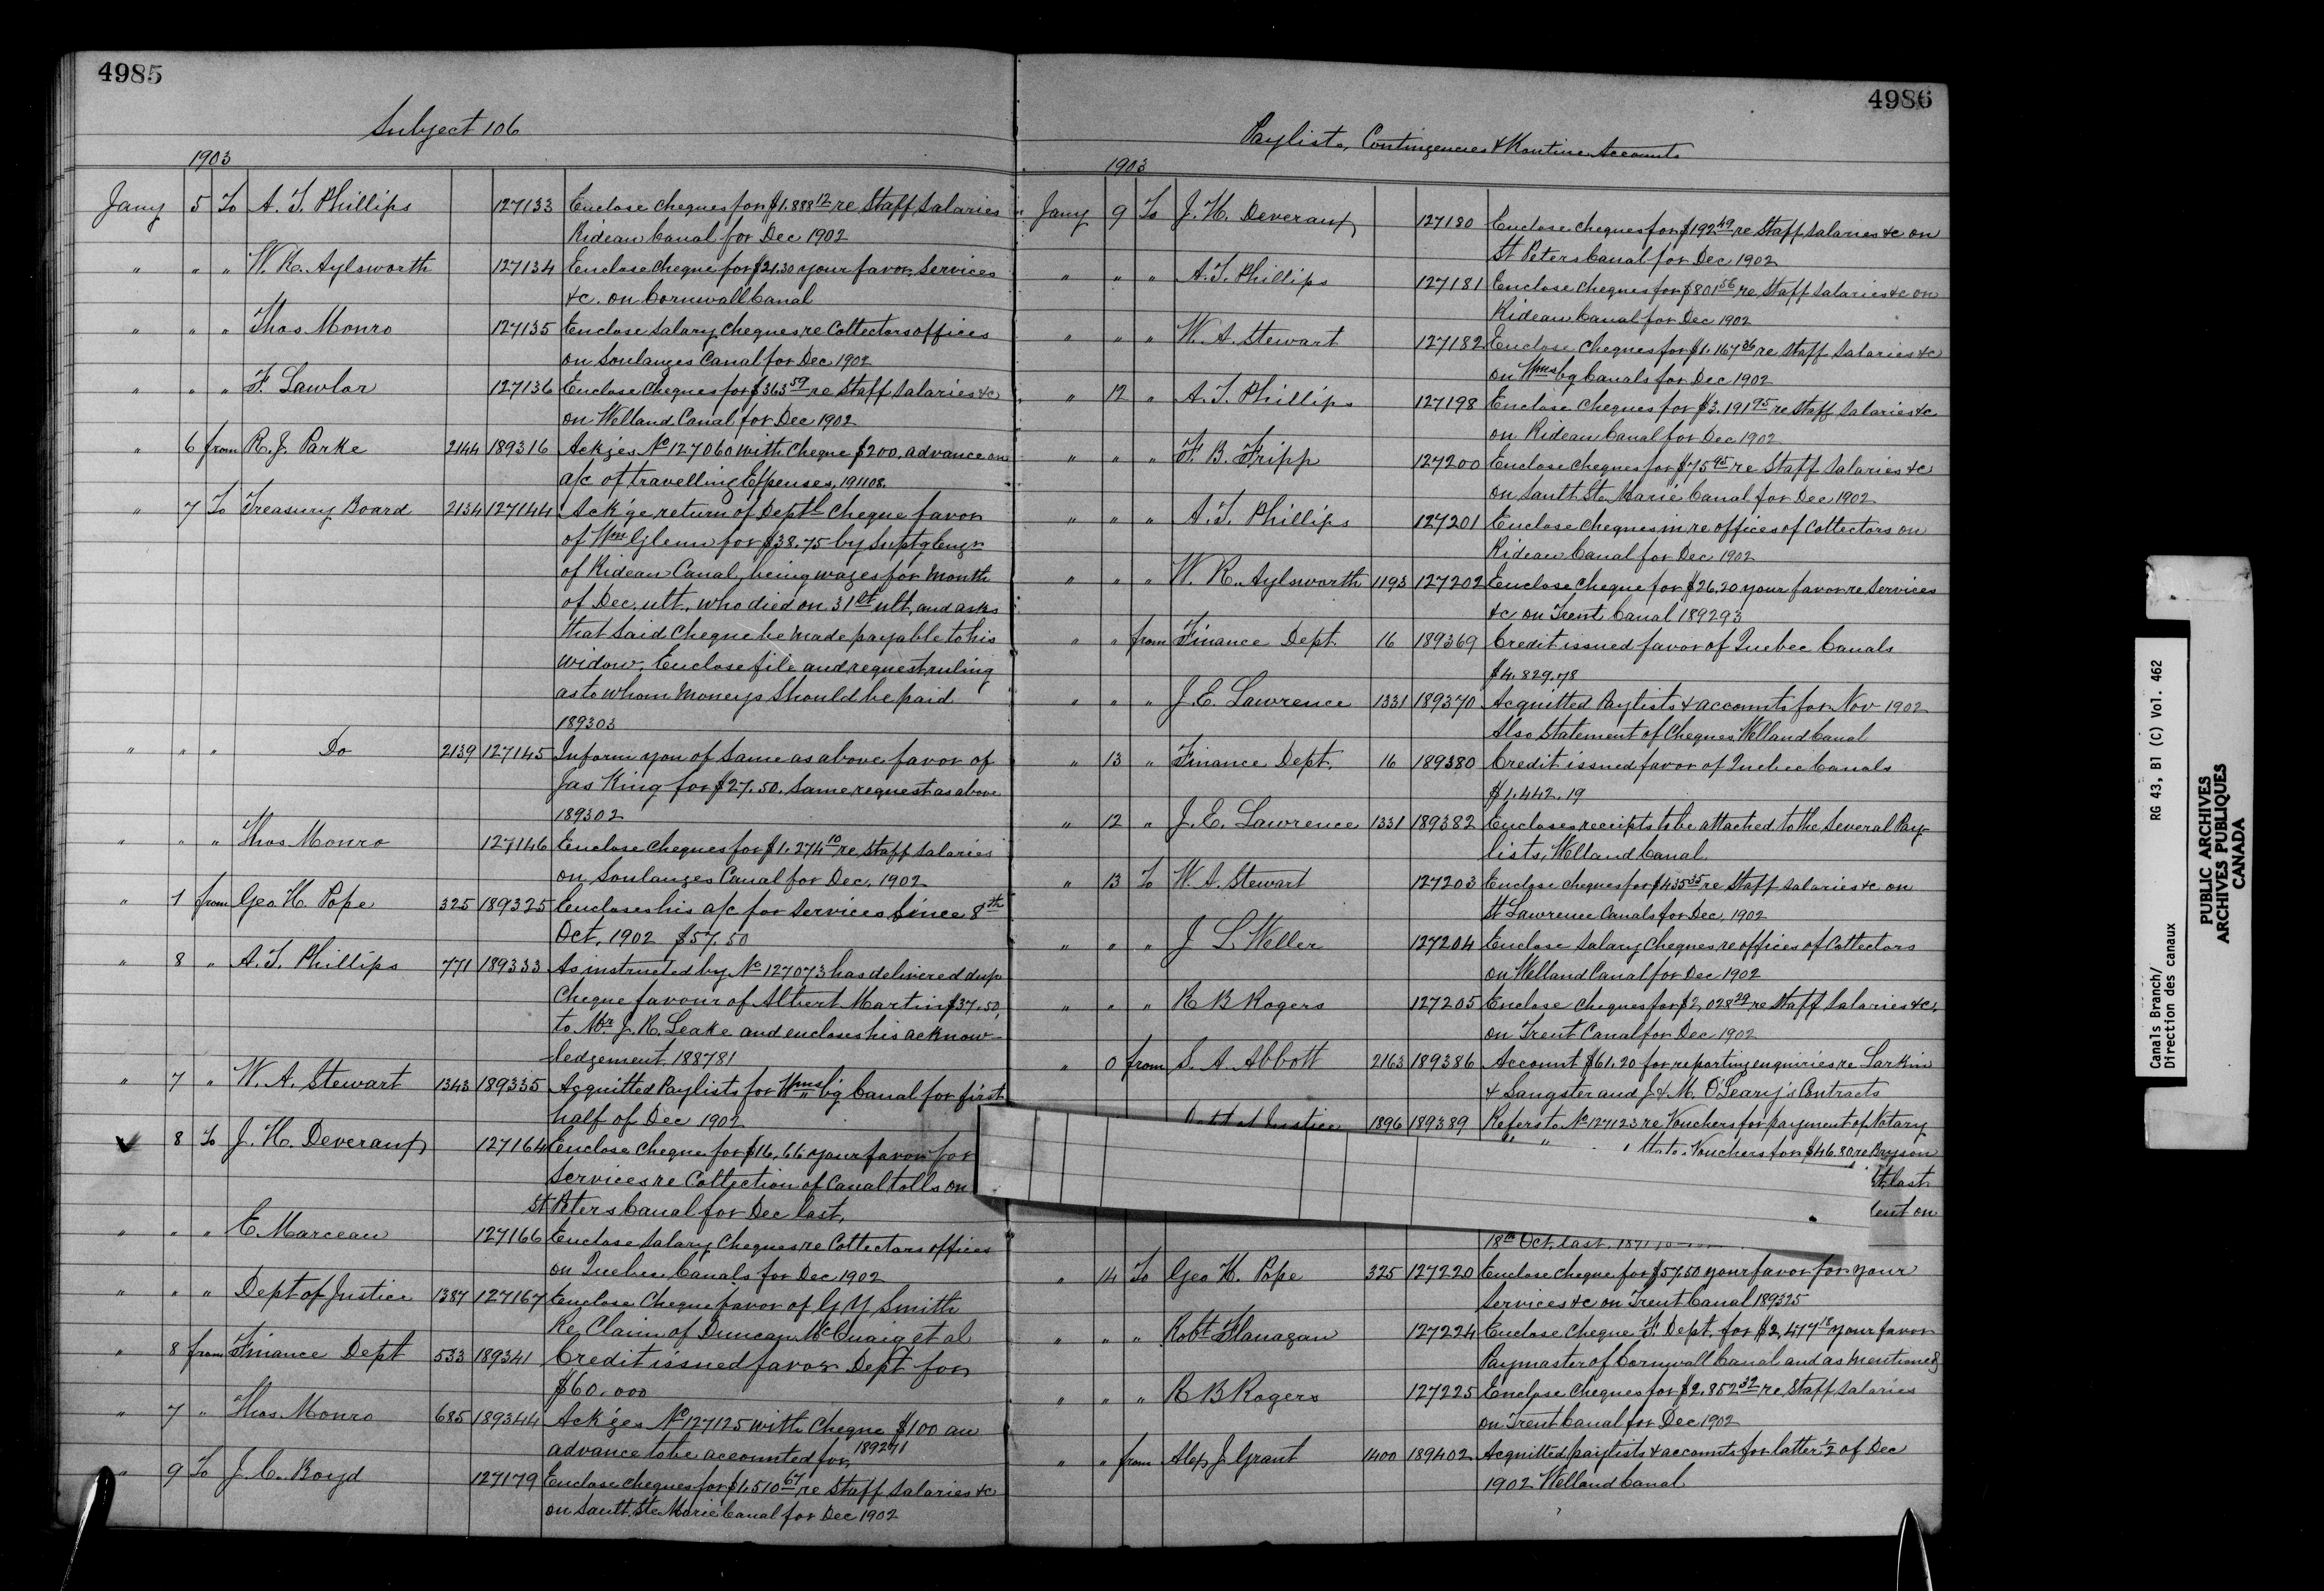 4985
Subject 106
1903
Jany 5 To A. T. Phillips 127133 Enclose cheques for $1.888 12 re Staff Salaries
Rideau Canal for Dec 1902
" " " W. R. Aylsworth 127134 Enclose cheque for $21.30 your favor Services
&c. on Cornwall Canal
" " " Thos Monro 127135 Enclose Salary cheques re Collectors offices
on Soulanges Canal for Dec 1902
" " " F. Lawlor 127136 Enclose Cheques for $363 59 re Staff Salaries &c
on Welland Canal for Dec 1902
" 6 from R. J. Parke 2144 189316 Ackges No 127060 with Cheque $200. advance on
a/c of travelling Expenses, 191108.
" 7 To Treasury Board 2134 127144 Ack'ge return of Deptl Cheque favor
of Wm Glenn for $38.75 by Suptg Engr
of Rideau Canal, being wages for month
of Dec. ult., who died on 31st ult, and asks
that said Cheque be made payable to his
widow. Enclose file and request ruling
as to whom moneys should be paid
189303
" " " Do 2139 127145 Inform you of same as above favor of
Jas King for $27.50. Same request as above
189302
" " " Thos Monro 127146 Enclose Cheques for $1.274 10 re Staff Salaries
on Soulanges Canal for Dec, 1902
" 7 from Geo H. Pope 325 189325 Encloses his a/c for Services Since 8th
Oct, 1902 $57.50
" 8 " A. T. Phillips 771 189333 As instructed by No 127073 has delivered dup
Cheque favour of Albert Martin $37.50,
to Mr J. R. Leake and encloses his acknow-
ledgement 188781
" 7 " W. A. Stewart 1343 189335 Acquitted Paylists for Wmsb'g Canal for first
half of Dec 1902
" 8 To J. H. Deveraux 127164 Enclose Cheque for $16.66 your favor for
Services re Collection of Canal tolls on
St Peters Canal for Dec last,
" " " E Marceau 127166 Enclose Salary Cheques re Collectors offices
on Quebec Canals for Dec 1902
" " " Dept of Justice 1387 127167 Enclose Cheque favor of G Y Smith
Re, Claim of Duncan McCuaig et al
" 8 from Finance Dept 533 189341 Credit issued favor Dept for
$60,000
" 7 " Thos Monro 685 189344 Ack'ges No 127125 with Cheque $100 an
advance to be accounted for, 189271
" 9 To J. C. Boyd 127179 Enclose cheques for $1,510 67 re Staff Salaries &c
on Sault Ste Marie Canal for Dec 1902
4986
Paylists, Contingencies & Routine Accounts
1903
Jany 9 To J. H. Deveraux 127180 Enclose cheques for $192 49 re Staff Salaries &c on
St Peters Canal for Dec 1902
" " " A. T. Phillips 127181 Enclose Cheques for $801 56 re Staff Salaries &c on
Rideau Canal for Dec 1902
" " " W. A. Stewart 127182 Enclose Cheques for $1.167 36 re Staff Salaries &c
on Wmsbg Canals for Dec 1902
" 12 " A. T. Phillips 127198 Enclose Cheques for $3.191 95 re Staff Salaries &c
on Rideau Canal for Dec 1902
" " " F. B. Fripp 127200 Enclose Cheques for $75 95 re Staff Salaries &c
on Sault Ste Marie Canal for Dec 1902
" " " A. T. Phillips 127201 Enclose Cheques in re offices of Collectors on
Rideau Canal for Dec 1902
" " " W. R. Aylsworth 1193 127202 Enclose Cheque for $26.20 your favor re Services
&c on Trent Canal 189293
" " from Finance Dept 16 189369 Credit issued favor of Quebec Canals
$4.829.78
" " " J. E. Lawrence 1331 189370 Acquitted Paylists & accounts for Nov 1902
Also Statement of Cheques Welland Canal
" 13 " Finance Dept. 16 189380 Credit issued favor of Quebec Canals
$1.442.19
" 12 " J. E. Lawrence 1331 189382 Encloses receipts to be attached to the Several Pay-
lists, Welland Canal.
" 13 To W. A. Stewart 127203 Enclose cheques for $435 35 re Staff Salaries &c on
St Lawrence Canals for Dec, 1902
" " " J L Weller 127204 Enclose Salary Cheques re offices of Collectors
on Welland Canal for Dec 1902
" " " R B Rogers 127205 Enclose Cheques for $2,028 29 re Staff Salaries &c.
on Trent Canal for Dec 1902
" 0 from S. A. Abbott 2163 189386 Account $61.20 for reporting enquiries re Larkin
& Sangster and J & M. O'Leary's Contracts
Dept of Justice 1896 189389 Refers to No 127123 re Vouchers for payment of Notary
Vouchers for $46.80 re Bryson
t last
ent on
18th Oct. last.
" 14 To Geo H. Pope 325 127220 Enclose Cheque for $57.50 your favor for your
Services &c on Trent Canal 189325
" " " Robt Flanagan 127224 Enclose Cheque F. Dept. for $2,477 18 your favor
Paymaster of Cornwall Canal and as mentioned
" " " R B Rogers 127225 Enclose Cheques for $2.852 32 re Staff Salaries
on Trent Canal for Dec 1902
" " from Alex J. Grant 1400 189402 Acquitted paylists & accounts for latter 1/2 of Dec
1902 Welland Canal
Canals Branch/ RG 43, B1 (C) Vol. 462
Direction des canaux
PUBLIC ARCHIVES
ARCHIVES PUBLIQUES
CANADA